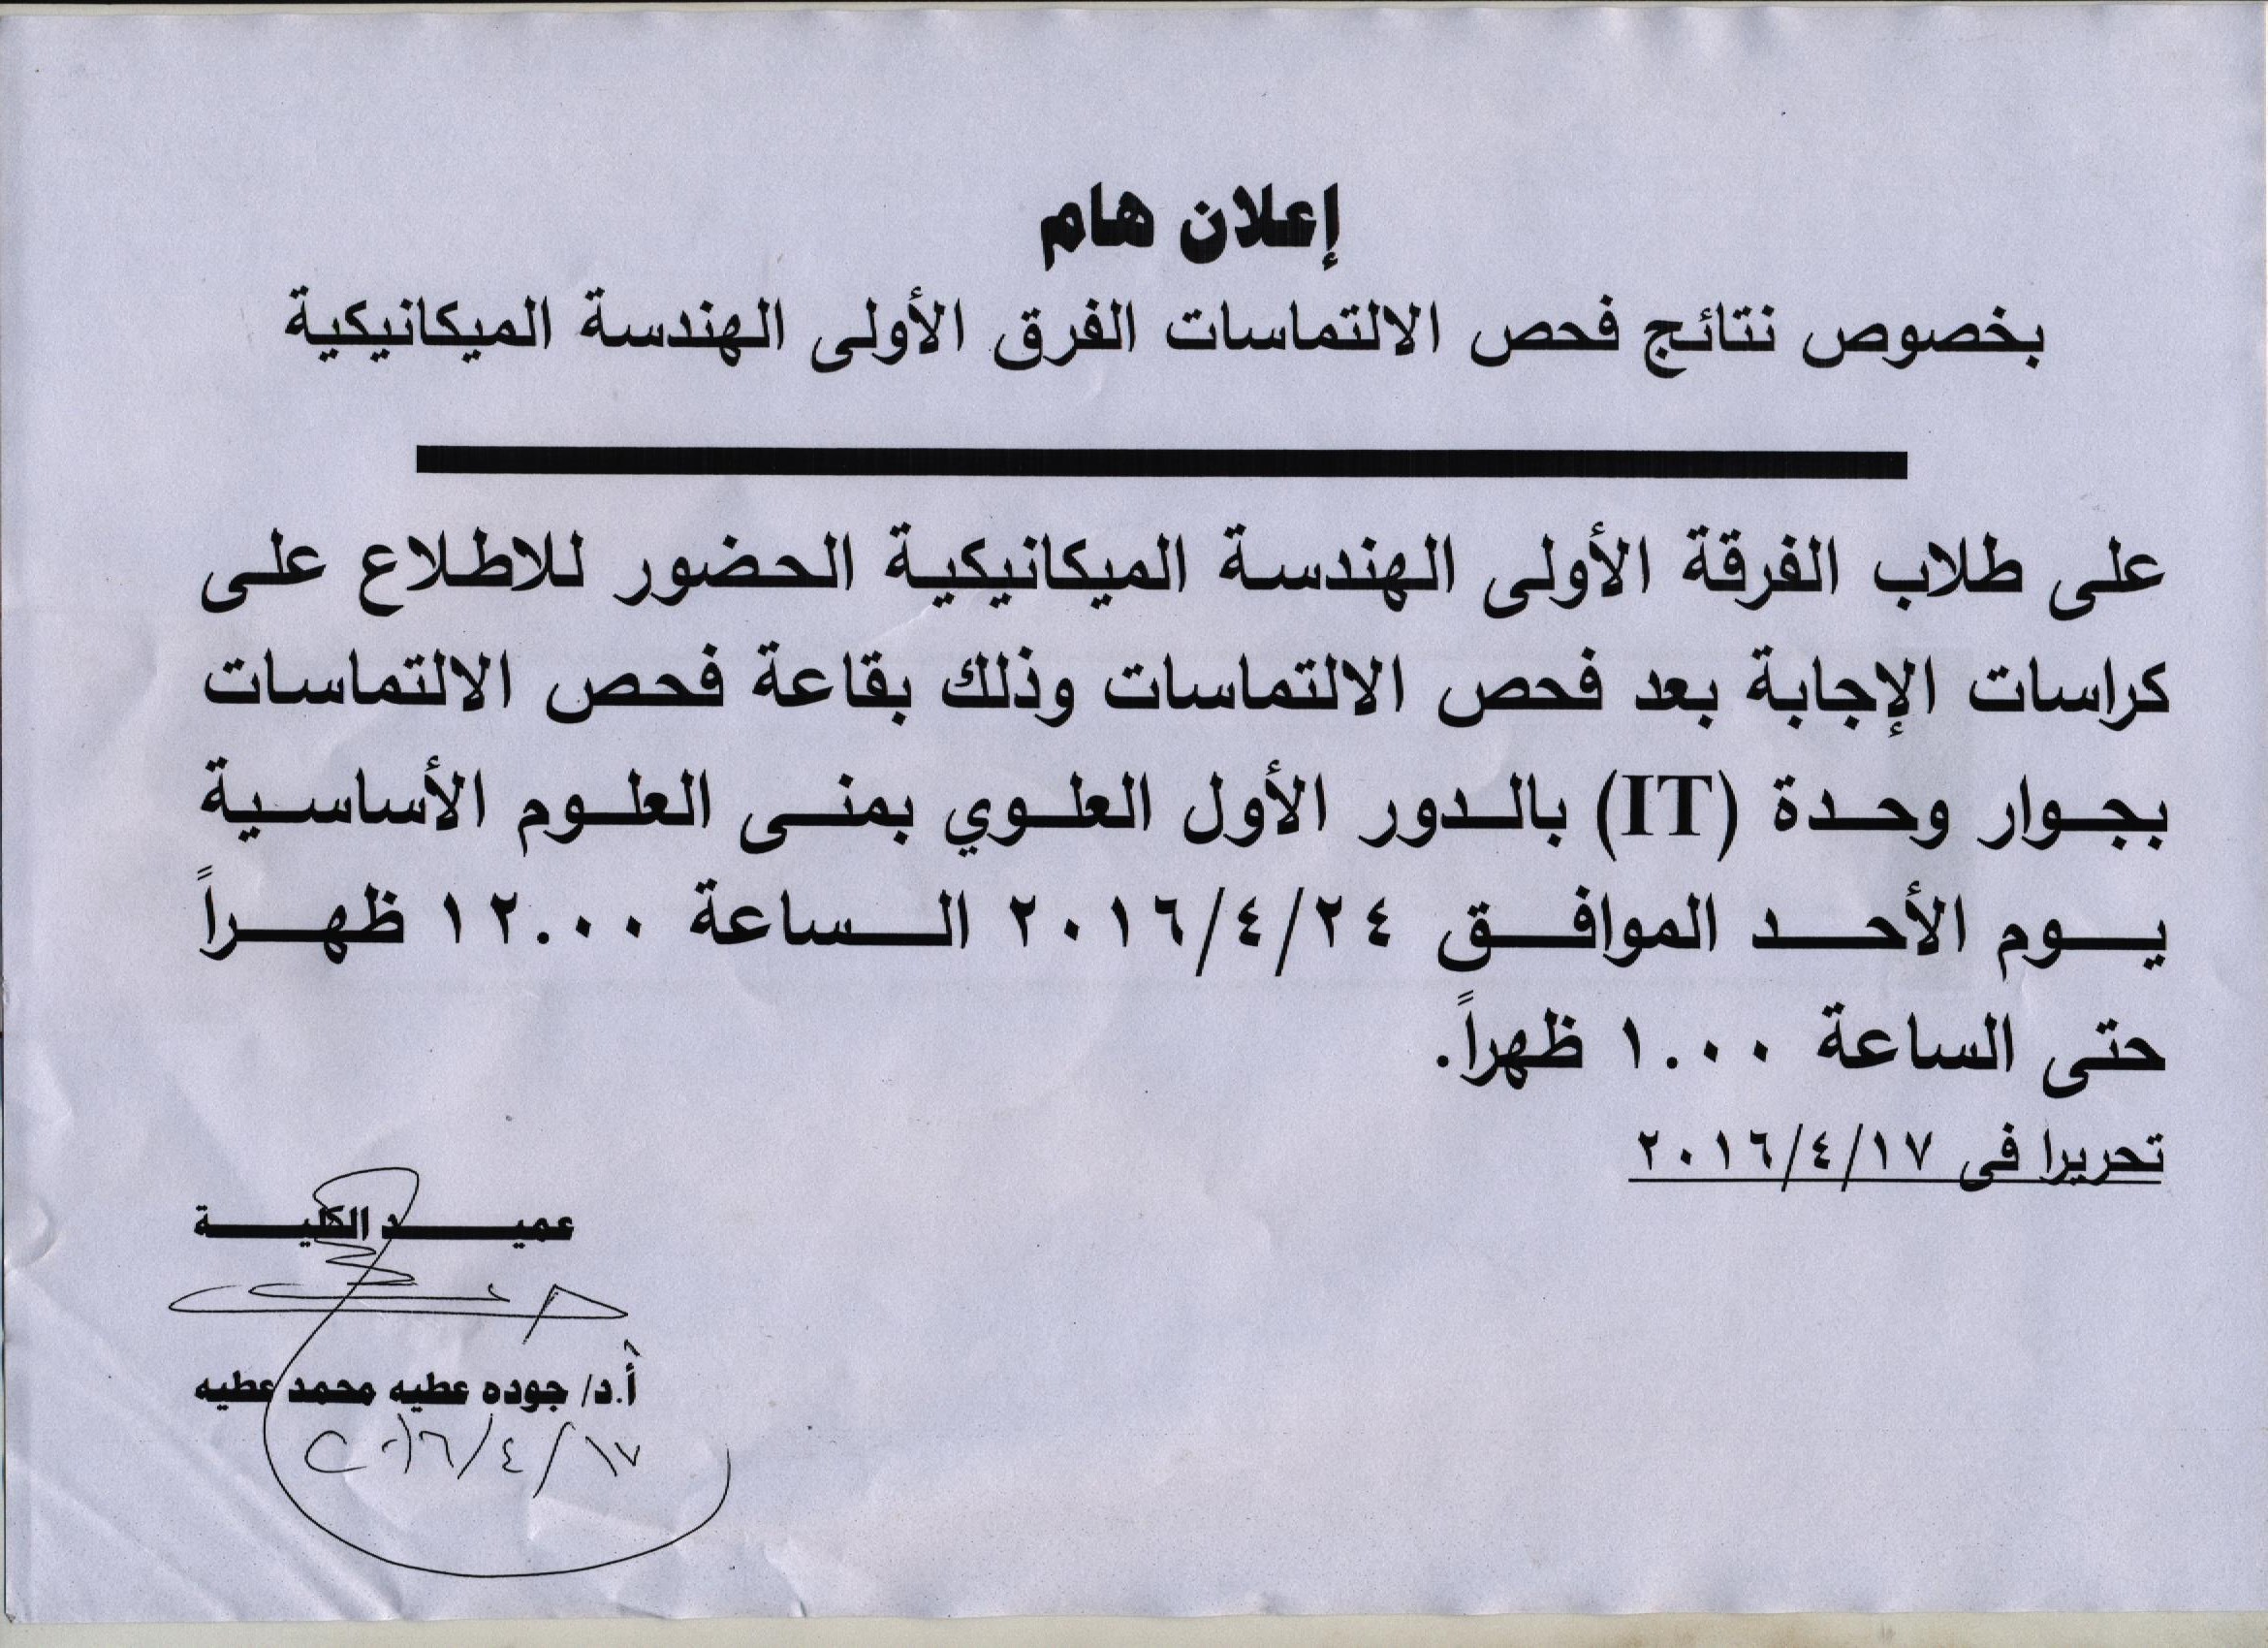 إعلان هام
بخصوص نتائج فحص الالتماسات الفرق الأولى الهندسة الميكانيكية
على طلاب الفرقة الأولى الهندسة الميكانيكية الحضور للاطلاع على
كراسات الإجابة بعد فحص الالتماسات وذلك بقاعة فحص الالتماسات
بجوار وحدة (IT) بالدور الأول العلوي بمنى العلوم الأساسية
يوم الأحد الموافق ٢٠١٦/٤/٢٤ الساعة ١٢.٠٠ ظهراً
حتى الساعة ١.٠٠ ظهراً.
تحريرا فى ٢٠١٦/٤/١٧
عميد الكلية
أ.د/ جوده عطيه محمد عطيه
٢٠١٦/٤/١٧